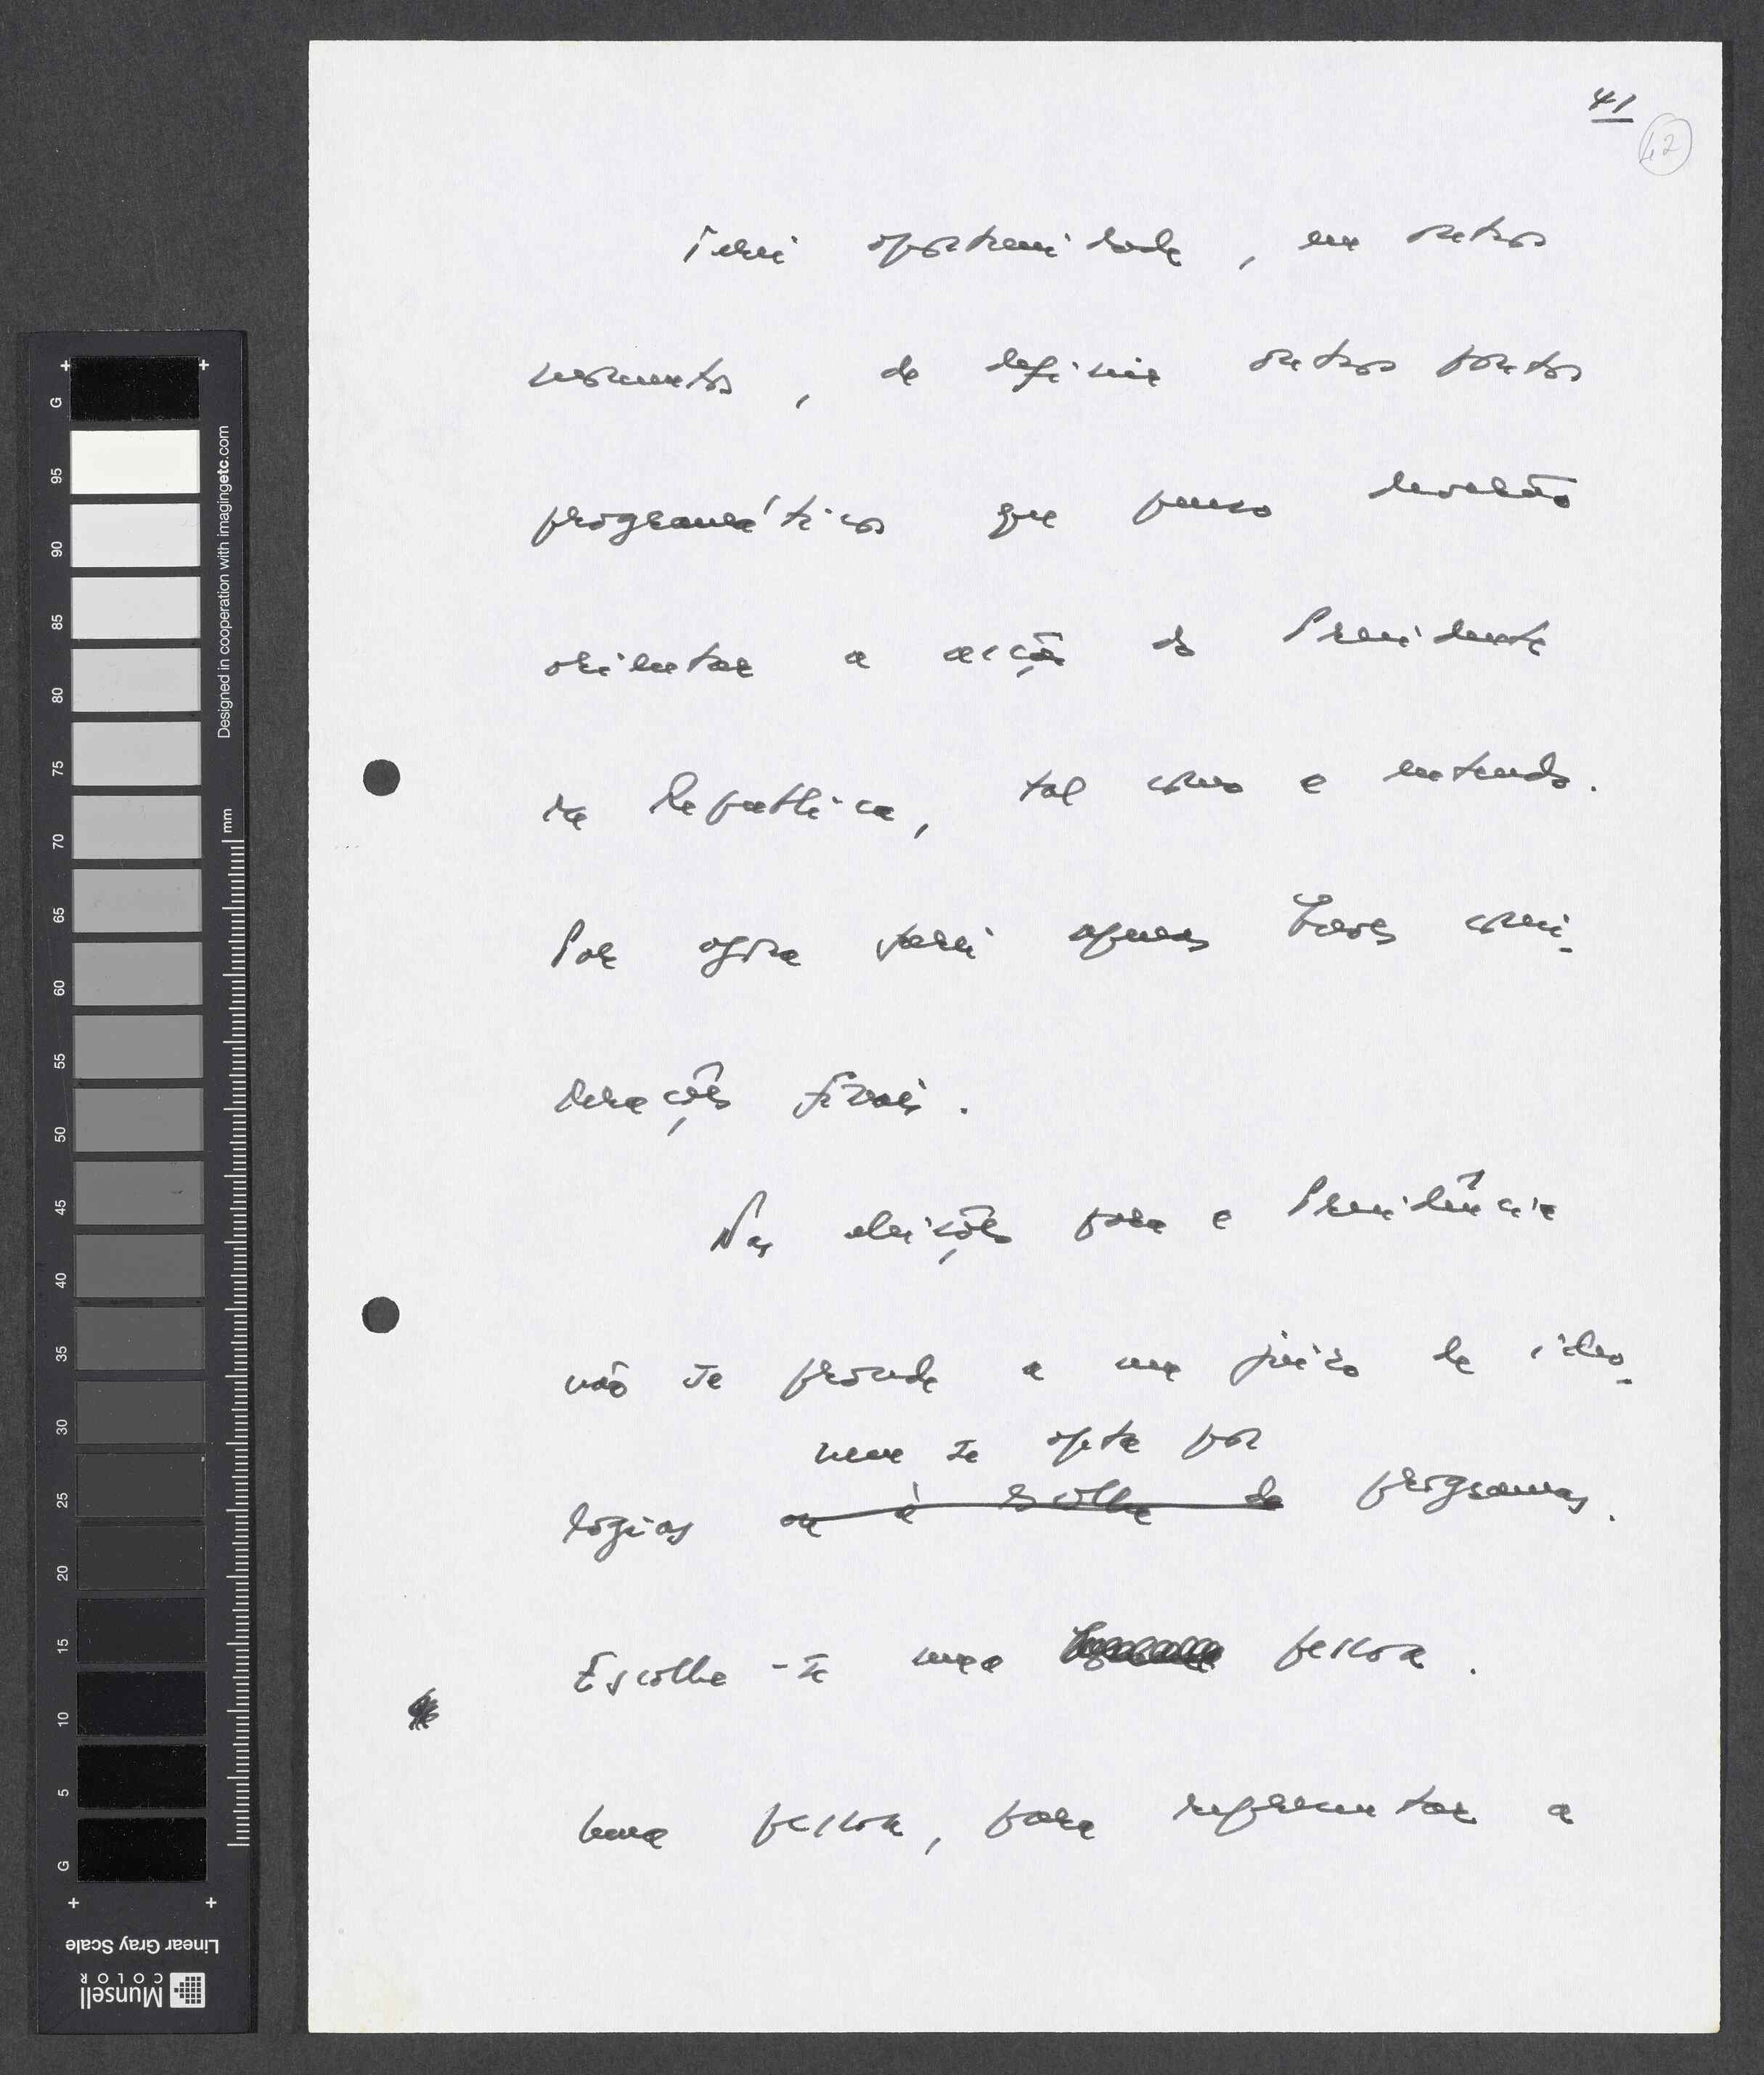 41
42
Terei oportunidade, em outros
momentos, de definir outros pontos
programáticos que penso deverão
orientar a acção do Presidente
da República, tal como a entendo.
Por agora farei apenas breves consi-
derações finais.
Nas eleições para a Presidência
não se procede a um juízo de ideo-
nem se opta por
logias ou à escolha de programas.
Escolhe-se uma pessoa.
Uma pessoa, para representar a
G
95
90
85
80
75
70
65
60
55
50
45
40
35
30
25
20
15
10
5
G
mm
Designed in cooperation with imagingetc.com
Linear Gray Scale
Munsell
COLOR